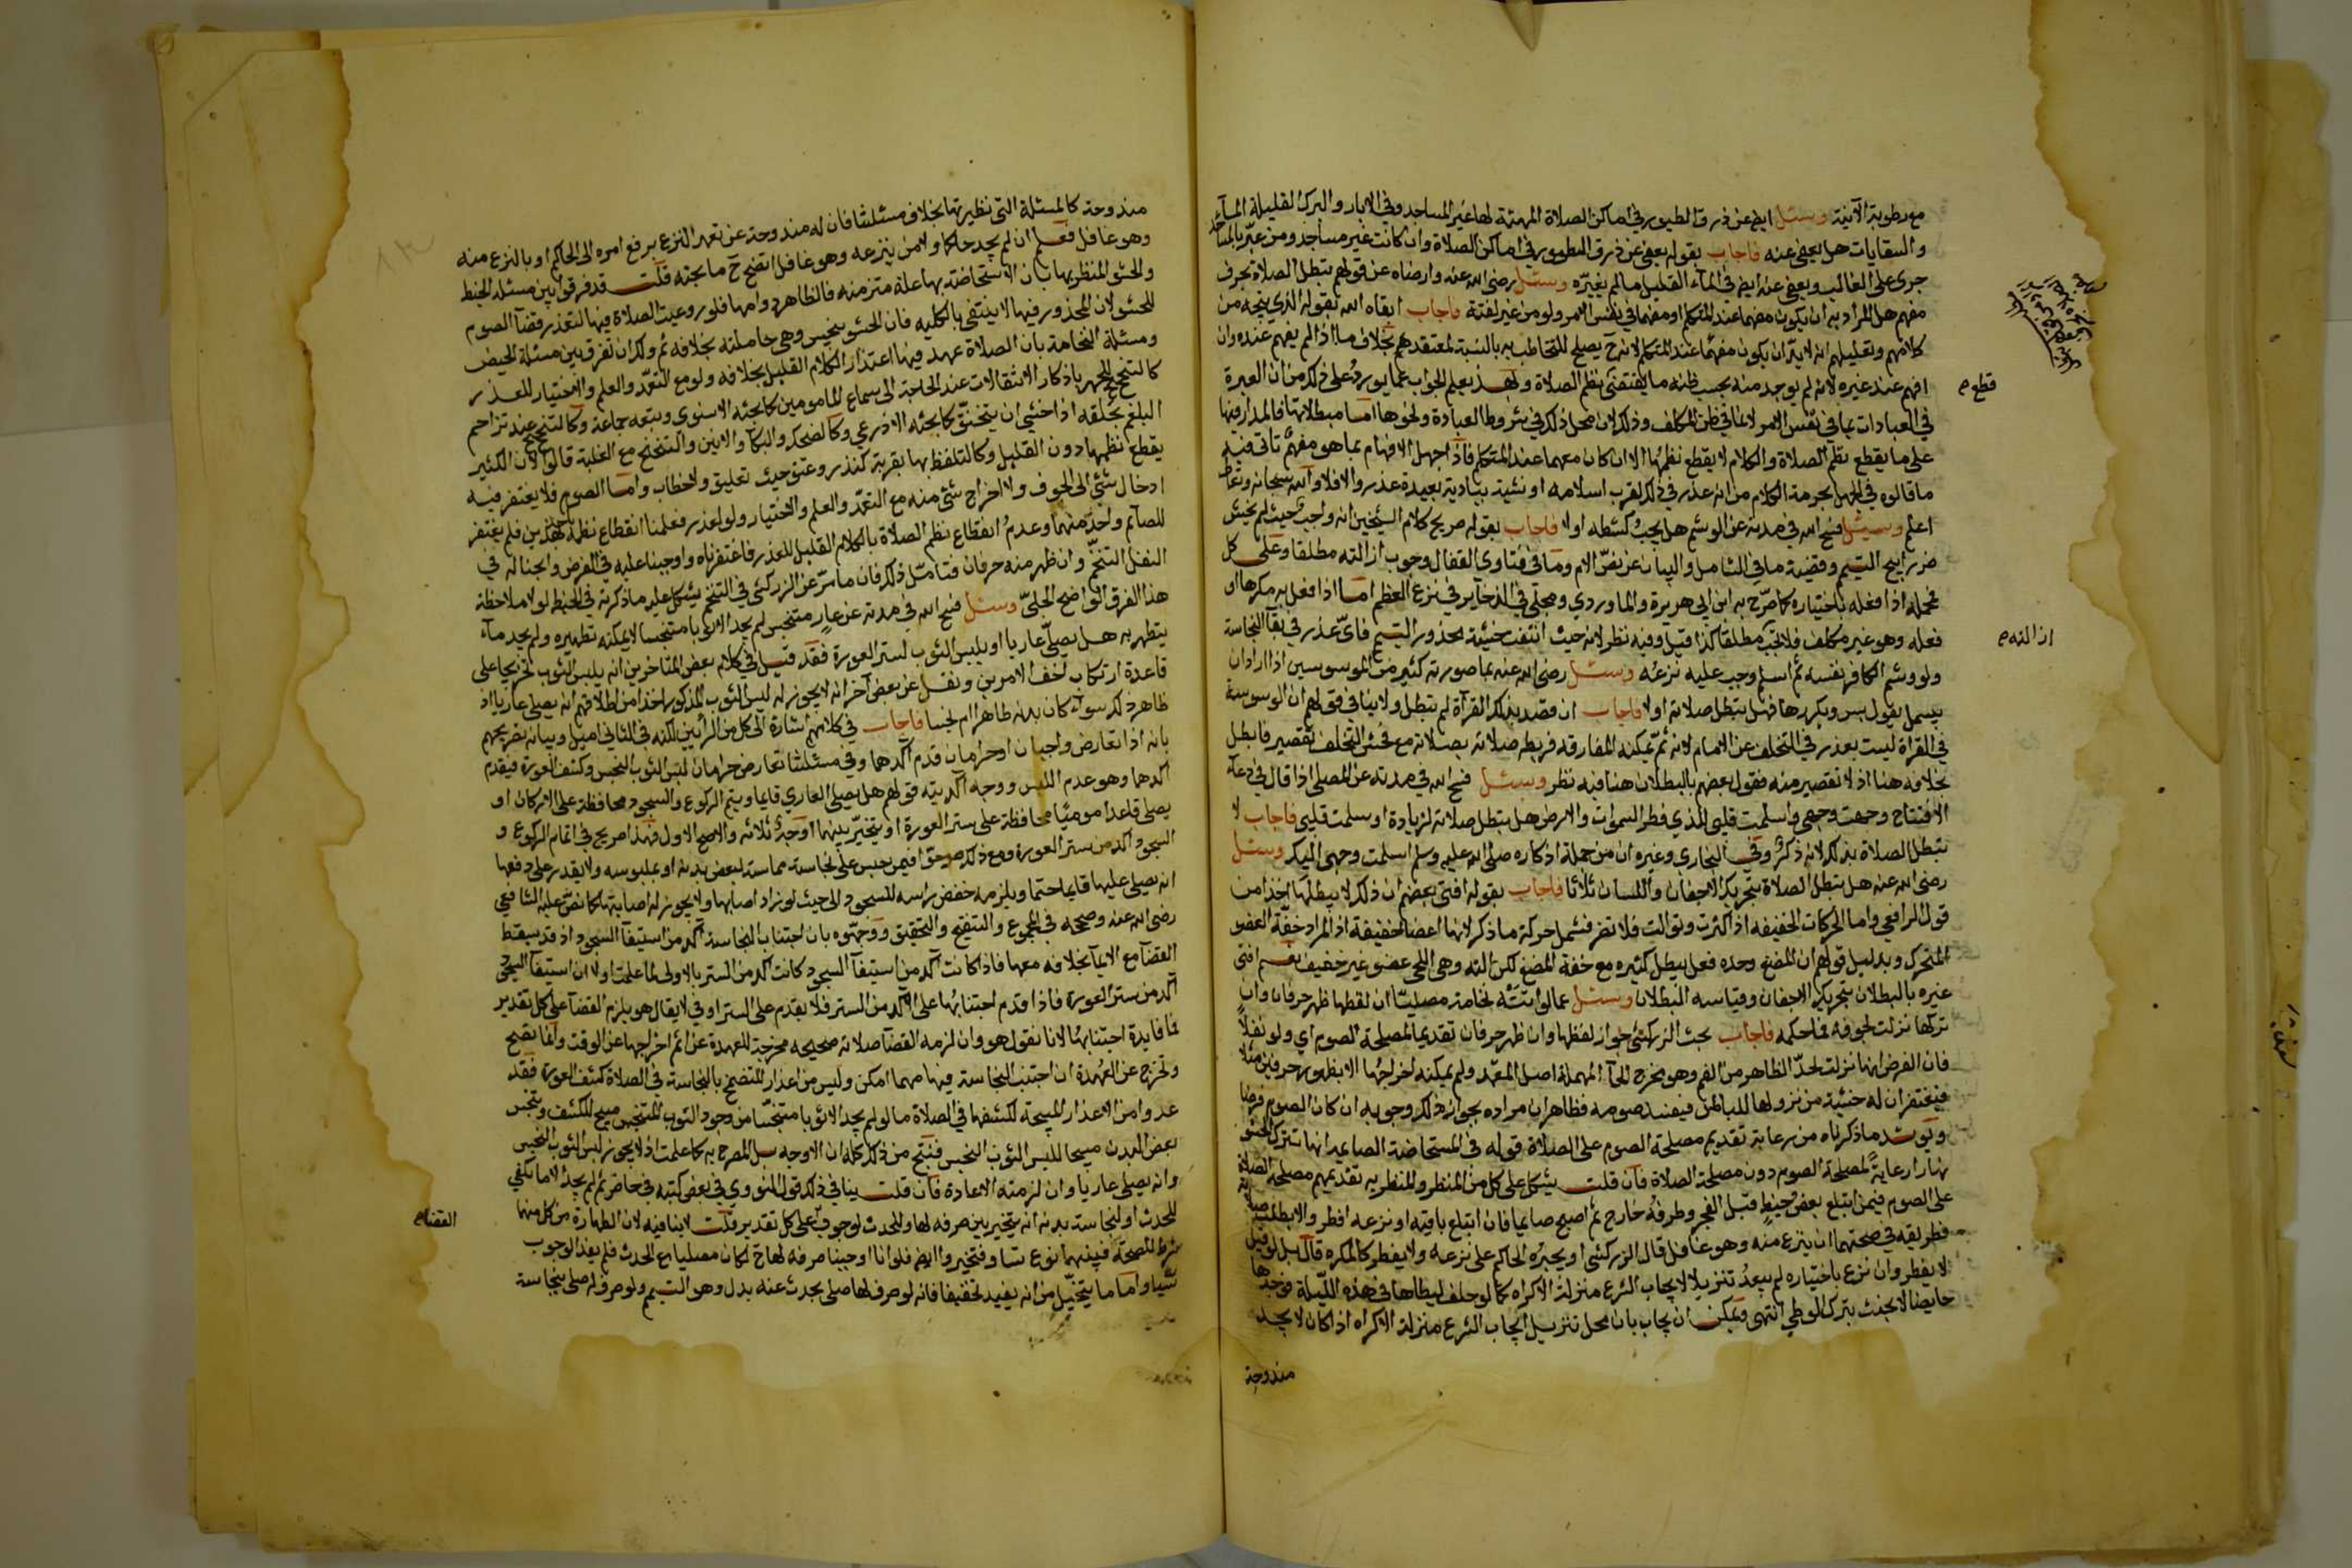 مع رطوبة الآنية وسئل ايض عن ذرق الطيور في اماكن الصلاة المهيئة لها غير المساجد وفي الابار والبرك القليلة المآء
والسقايات هل يعفى عنه فاجاب بقوله يعفى عن ذرق الطيور في اماكن الصلاة وان كانت غير مساجد ومن عبّر بالمساجد
جرى على الغالب ويعفى عنه ايض في المآء القليل مالم يغيّره وسئل رضي الله عنه وارضاه عن قولهم تبطل الصلاة بحرف
مفهم هل المراد به ان يكون مفهما عند المتكلم او مفهما في نفس الامر ولو من غير لغته فاجاب ابقاه الله بقوله الذي يتجه من
كلامهم وتعليلهم انه لا بدّ ان يكون مفهما عند المتكلم لانه ح يصلح للتخاطب به بالنسبة لمعتقدهم بخلاف ما اذا لم يفهم عنده وان
افهم عند غيره لانه لم يوجد منه بحسب ظنه ما يقتضى نظم الصلاة وبهذ يعلم الجواب عما يورد على ذلك من ان العبرة
في العبادات بما في نفس الامر لا بما في ظن المكلف وذلك لان محل ذلك في شروط العبادة ونحوها امّا مبطلاتها فالمدار فيها
على ما يقطع نظم الصلاة والكلام لا يقطع نظمها الا ان كان مفهما عند المتكلم فاذا جهل الافهام بما هو مفهم تأتى فيه
ما قالوه في الجهل بحرمة الكلام من انه عذر في ذلك لقرب اسلامه او نشئه ببادية بعيدة عذر والا فلا والله سبحانه وتعالى
اعلم وسئل فسح الله في مدته عن الوشم هل يجب كشطه اولا فاجاب بقوله صريح كلام الشيخين انه واجب حيث لم يخش
ضررا يبيح التيمم وقضية ما في الشامل والبيان عن نصّ الام وما في فتاوى القفال وجوب ازالته مطلقا وعلى كل
فمحله اذا فعله باختياره كما صرّح به ابن ابي هريرة والماوردي ومجلي في الذخآير في نزع العظم امّا اذا فعل به مكرها او
فعله وهو غير مكلف فلا تجب مطلقا كذا قيل وفيه نظر لانه حيث انتفت خشية محذور التيمم فايّ عذر في بقآ النجاسة
ولو وشم الكافر نفسه ثم اسلم وجب عليه نزعه وسئل رضي الله عنه بما صورته كثير من الموسوسين اذا اراد ان
يبسمل يقول بس ويكررها فهل تبطل صلاته اولا فاجاب ان قصد بذلك القرآة لم تبطل ولا ينافي قولهم ان الوسوسة
في القراة ليست بعذر في التخلف عن الامام لانه ثمّ يمكنه المفارقه فربطه صلاته بصلاته مع فحش التخلف تقصير فابطل
بخلافه هنا اذ لا تقصير منه فقول بعضهم بالبطلان هنا فيه نظر وسئل فسح الله في مدته عن المصلى اذا قال في دعآء
الافتتاح وجهت وجهي واسلمت قلبى للذي فطر السموات والارض هل تبطل صلاته لزيادة او سلمت قلبى فاجاب لا
تبطل الصلاة بذلك لانه ذكر وفي البخاري وغيره ان من جملة اذكاره صلى الله عليه وسلم اسلمت وجهى اليك وسئل
رضى الله عنه هل تبطل الصلاة بتحريك الاجفان واللسان ثلاثا فاجاب بقوله افتى بعضهم ان ذلك لا يبطلها اخذا من
قول الرافعي واما الحركات الخفيفه اذا كثرت وتوالت فلا تضر فشمل حركة ما ذكر لانها اعضا خفيفة اذ المراد خفّة العضو
المتحرك وبدليل قولهم ان المضغ وحده فعل يبطل كثيره مع خفة المضغ لكن آلته وهى اللحى عضو غير خفيف نعم افتى
غيره بالبطلان بتحريك الاجفان وقياسه البطلان وسئل عما لو اتته نخامة مصليّا ان لفظها ظهر حرفان وان
تركها نزلت لجوفه فما حكمه فاجاب بحث الزركشي جواز لفظها وان ظهر حرفان تقديما لمصلحة الصوم اي ولو نفلاً
فان الفرض انها نزلت لحدّ الظاهر من الفم وهو مخرج الحآ المهملة اصل المعتمد ولم يمكنه اخراجها الا بظهور حرفين مثلا
فيغتفران له خشية من نزولها للباطن فيفسد صومه فظاهر ان مراده بجواز ذلك وجوبه ان كان الصوم فرضا
ويرشد ما ذكرناه من رعاية تقديم مصلحة الصوم على الصلاة قوله في المستحاضة الصايمه انها تترك الحشو
نهارا رعايةً لمصلحة الصوم دون مصلحة الصلاة فان قلت يشكل على كل من المنظر والمنظر به تقديمهم مصلحة الصلاة
على الصوم فيمن ابتلع بعض خيط قبل الفجر وطرفه خارج ثم اصبح صايما فان ابتلع باقيه او نزعه افطر والا بطلت صلاته
فطريقه في صحتهما ان ينزع منه وهو غافل قال الزركشي او يجبره الحاكم على نزعه ولا يفطر كالمكره قال بل لو قيل
لا يفطر وان نزع باختياره لم يبعد تنزيلا لايجاب الشرع منزلة الاكراه كما لو حلف ليطاها في هذه الليلة فوجدها
حايضا لا يحنث بترك الوطي انتهى ويمكن ان يجاب بان محل تنزيل ايجاب الشرع منزلة الاكراه اذا كان لا يجد
مندوحة
قطع م
ازالته م
مندوحة كالمسئلة التى نظير بها بخلاف مسئلتنا فان له مندوحة عن تعمد النزع برفع امره الى الحاكم او بالنزع منه
وهو غافل فعلم ان لم يجد حاكما ولا من ينزعه وهو غافل اتضح ح ما بحثه قلت قد فرقوا بين مسئلة الخيط
والحشو المنظر بها بان الاستحاضة بها علة متزمنه فالظاهر دوامها فلو روعيت الصلاة فيها لتعذر قضآ الصوم
للحشو لان المحذور فيها لا ينتفى بالكليه فان الحشو ينجس وهى حاملته بخلافه ثم ولك ان تفرق بين مسئلة الحيض
ومسئلة النخامة بان الصلاة عهد فيها اعتذار الكلام القليل بخلافه ولو مع التعمّد والعلم والاختيار للعذر
كالتنحنح للجهر باذكار الانتقالات عند الحاجة الى سماع المامومين كما بحثه الاسنوى وتبعه جماعة وكالتنحنح عند تزاحم
البلغم بحلقه اذا خشي ان يتخنّق كما بحثه الاذرعي وكالضحك والبكآ والانين والتنحنح مع الغلبة قالوا لان الكثير
يقطع نظمها دون القليل وكالتلفظ بها بقربة كنذر وعتق حيث تعليق ولا خطاب وامّا الصوم فلا يغتفر فيه
ادخال شئ الى الجوف ولا اخراج شئ منه مع التعمّد والعلم والاختيار ولو لعذر فعلمنا انقطاع نظمه بهذين فلم يغتفر
للصآئم واحد منهما وعدم انقطاع نظم الصلاة بالكلام القليل للعذر فاغتفرناه واوجبنا عليه في الفرض وابحناله في
النفل التنخّم وان ظهر منه حرفان فتامّل ذلك فان ما مرّ عن الزركشي في التنخم يشكل عليه ما ذكرته في الخيط لولا ملاحظة
هذا الفرق الواضح الجليّ وسئل فسح الله في مدته عن عارٍ متنجس لم يجد الا ثوبا متنجسا لا يمكنه تطهيره ولم يجد مآء
يتطهر به هل يصلّى عاريا او يلبس الثوب لستر العورة فقد قيل في كلام بعض المتاخرين انه يلبس الثوب تخريجا على
قاعدة ارتكاب اخف الامرين ونقل عن بعض آخر انه لا يجوز له لبس الثوب المذكور اخذا من اطلاقهم انه يصلى عاريا اذ
ظاهر ذلك سوآء كان بدنه طاهرا ام نجسا فاجاب في كلامهم اشارة الى كل من الرأيين لكنه في الثاني اميل وبيانه تصريحهم
بانه اذا تعارض واجبان او حرامان قدم آكدهما وفي مسئلتنا تعارض حرامان لبس الثوب النجس وكشف العورة فيقدم
آكدهما وهو عدم اللبس ووجه آكديته قولهم هل يصلى العاري قايما ويتم الركوع والسجود محافظة على الاركان او
يصلى قاعدا موميًا محافظة على ستر العورة او يتخيّر بينهما اوجه ثلاثه والاصح الاول فهذا صريح في اتمام الركوع و
السجود آكد من ستر العورة ومع ذلك صرّحوا فيمن حبس على نجاسة مماسة لبعض بدنه او ملبوسه ولا يقدر على دفعها
انه يصلى عليها قايما حتما ويلزمه خفض راسه للسجود الى حيث لو زاد اصابها ولا يجوز له اصابتها كما نصّ عليه الشافعي
رضى الله عنه وصححه في المجموع والتنقيح والتحقيق ووجّهوه بان اجتناب النجاسة آكد من استيفآ السجود اذ قد يسقط
القضآ مع الايمآ بخلافه معها فاذا كانت آكد من استيفآ السجود كانت آكد من الستر بالاولى لما علمت اولا ان استيفآ السجود
آكد من ستر العورة فاذا قدم اجتنابها على الآكد من الستر فلا يقدم على الستر اوفى لا يقال هو يلزم القضآ على كل تقدير
فما فايدة اجتنابها لانا نقول هو وان لزمه القضآ صلاته صحيحه مخرجة للعهدة عن اثم اخراجها عن الوقت وانما تصح
وتخرج عن العُهدة ان اجتنب النجاسة فيها مهما امكن وليس من اعذار التضمخ بالنجاسة في الصلاة كشف العورة فقد
عدوا من الاعذار المبيحة لكشفها في الصلاة ما لو لم يجد الا ثوبا متنجّسا من وجود الثوب المتنجس مبيح للكشف وتنجس
بعض البدن مبيحا للبس الثوب النجس فنتج من ذلك كله ان الاوجه بل المصرح به كما علمت اذ لا يجوز لبس الثوب النجس
وانه يصلى عاريا وان لزمته الاعادة فان قلت ينافي ذلك قول النووي في بعض كتبه في حاضر ثم لم يجد الا ما يكفي
للحدث او لنجاسة بدنه انه يتخير بين صرفه لها وللحدث لوجوب على كل تقدير قلت لا ينافيه لان الطهارة من كل منهما
شرط للصحة فبينهما نوع تساو فتخير وايض فلو انا اوجبنا صرفه لها ح لكان مصليا مع الحدث فلم يفد الوجوب
شيا واما ما يتخيّل من انه يفيد تخفيفا فانه لو صرف لها صلى بحدث عنه بدل وهو التيمم ولو صرف له صلى بنجاسة
القضا م